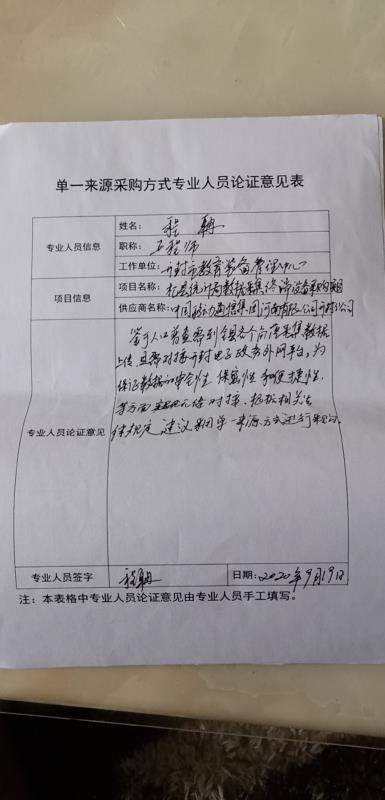 单一来源采购方式专业人员论证意见表
专业人员信息
姓名：程
职称：工程师
工作单位：开封市教育装备管理中心
项目信息
项目名称：杞县统计局数据采集终端设备采购项目
供应商名称：中国移动通信集团河南有限公司开封分公司
专业人员论证意见
鉴于人口普查需到全县各个角落采集数据
上传，且需对接开封电子政务外网平台，为
保证数据的安全性、保密性和便捷性，
等方面 对接，根据相关法
律规定，建议采用单一来源方式进行采购。
专业人员签字
程
日期：2020年9月19日
注：本表格中专业人员论证意见由专业人员手工填写。